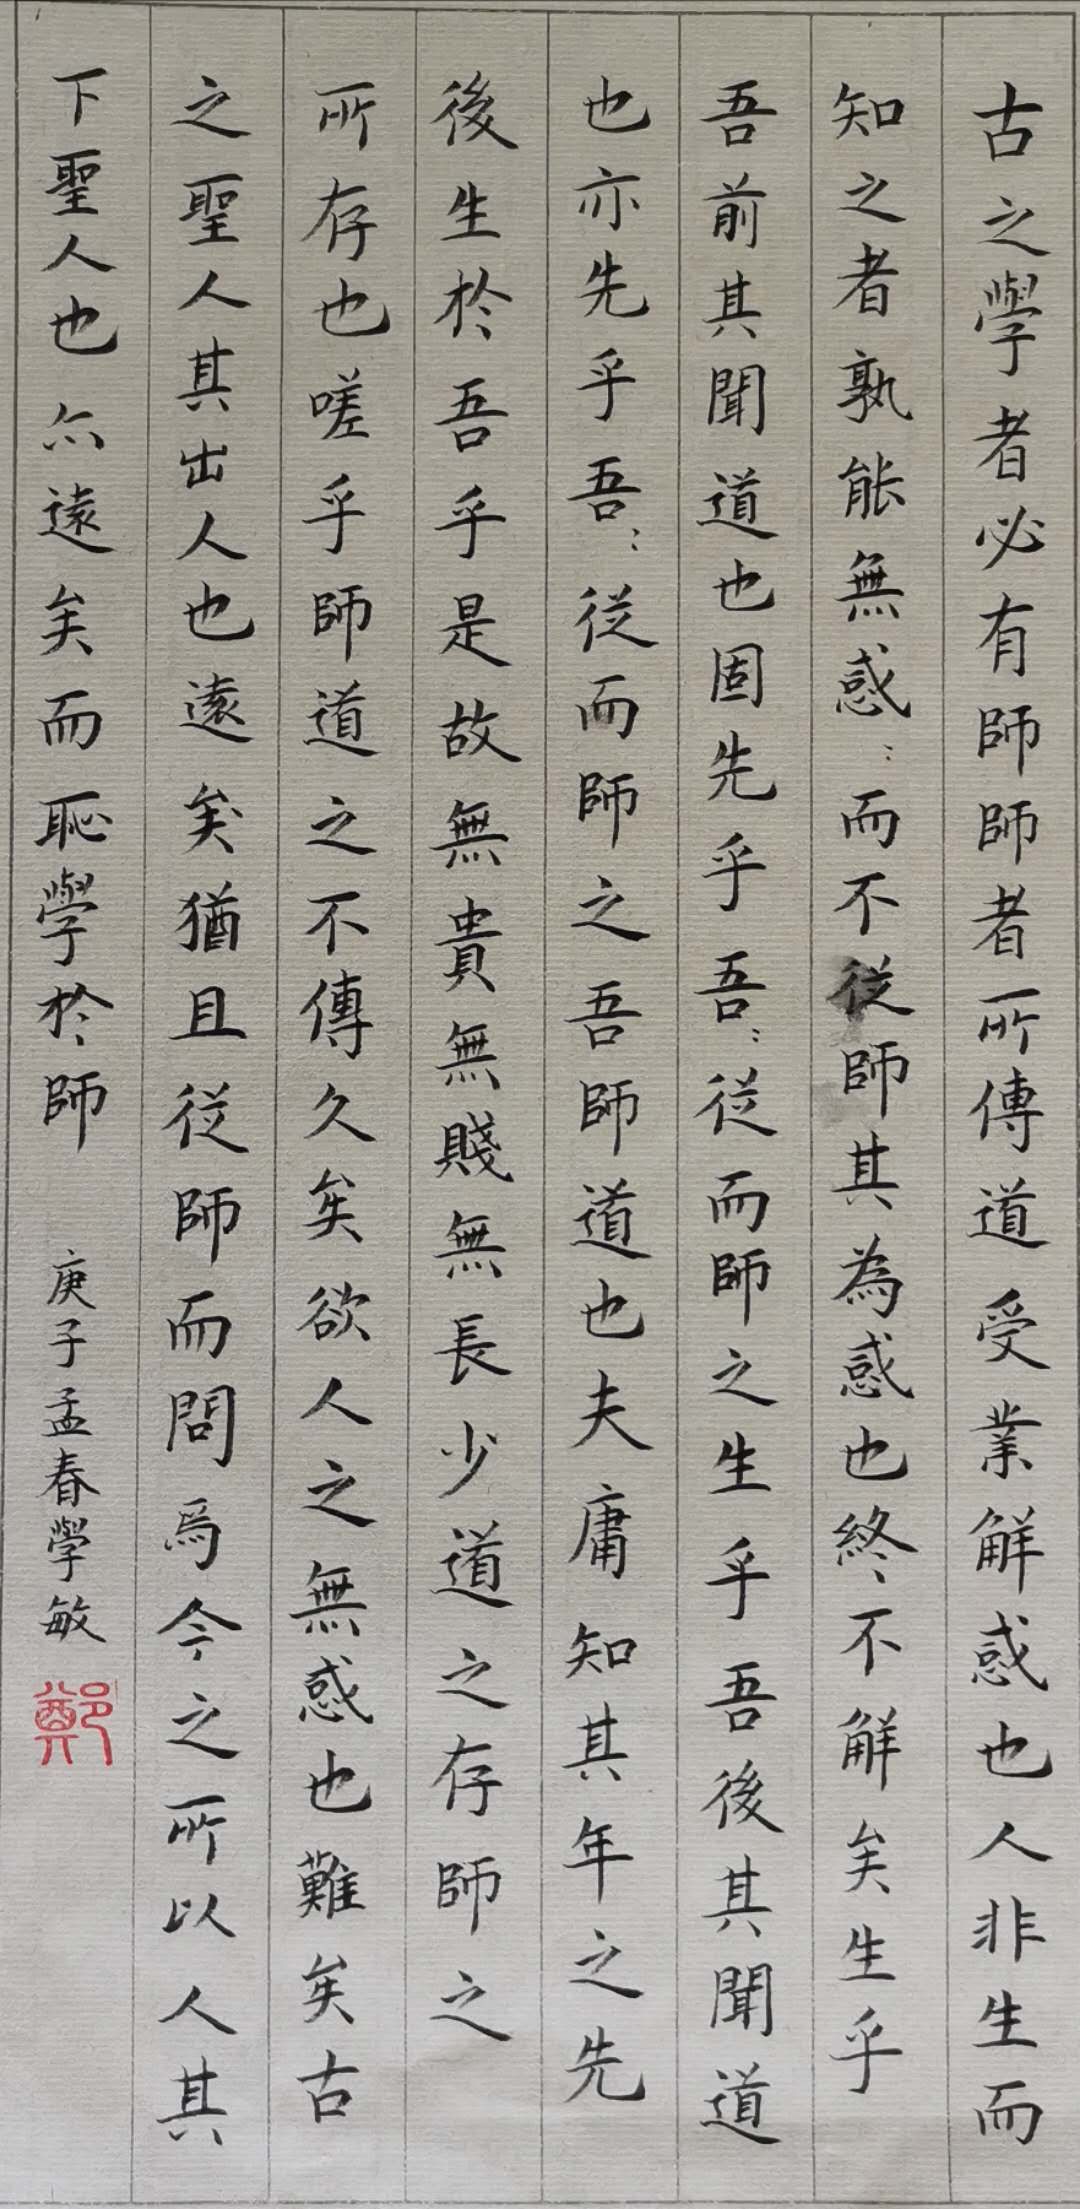 古之學者必有師師者所傳道受業解惑也人非生而
知之者孰能無惑〻而不從師其為惑也終不解矣生乎
吾前其聞道也固先乎吾〻從而師之生乎吾後其聞道
也亦先乎吾〻從而師之吾師道也夫庸知其年之先
後生於吾乎是故無貴無賤無長少道之存師之
所存也嗟乎師道之不傳久矣欲人之無惑也難矣古
之聖人其出人也遠矣猶且從師而問焉今之所以人其
下聖人也亦遠矣而恥學於師
庚子孟春學敏
鄭